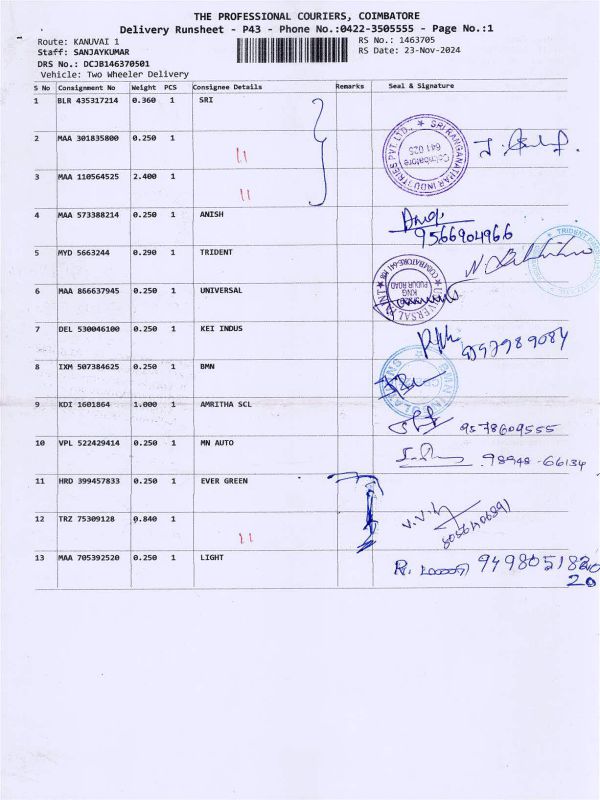 THE PROFESSIONAL COURIERS, COIMBATORE
Delivery Runsheet - P43 - Phone No.:0422-3505555 - Page No.:1
Route: KANUVAI 1
RS No.: 1463705
Staff: SANJAYKUMAR
RS Date: 23-Nov-2024
DRS No.: DCJB146370501
Vehicle: Two Wheeler Delivery
S No Consignment No Weight PCS Consignee Details Remarks Seal & Signature
1 BLR 435317214 0.360 1 SRI
2 MAA 301835800 0.250 1 11
SRI RANGANATHAR INDUSTRIES PVT. LTD.
Coimbatore
641 025
3 MAA 110564525 2.400 1 11
4 MAA 573388214 0.250 1 ANISH
9566904966
5 MYD 5663244 0.290 1 TRIDENT
TRIDENT
6 MAA 866637945 0.250 1 UNIVERSAL
UNIVERSAL
PUDUR ROAD
KNG
7 DEL 530046100 0.250 1 KEI INDUS
8 IXM 507384625 0.250 1 BMN
9 KDI 1601864 1.000 1 AMRITHA SCL
9578609555
10 VPL 522429414 0.250 1 MN AUTO
98948-66134
11 HRD 399457833 0.250 1 EVER GREEN
12 TRZ 75309128 0.840 1 11
13 MAA 705392520 0.250 1 LIGHT
20